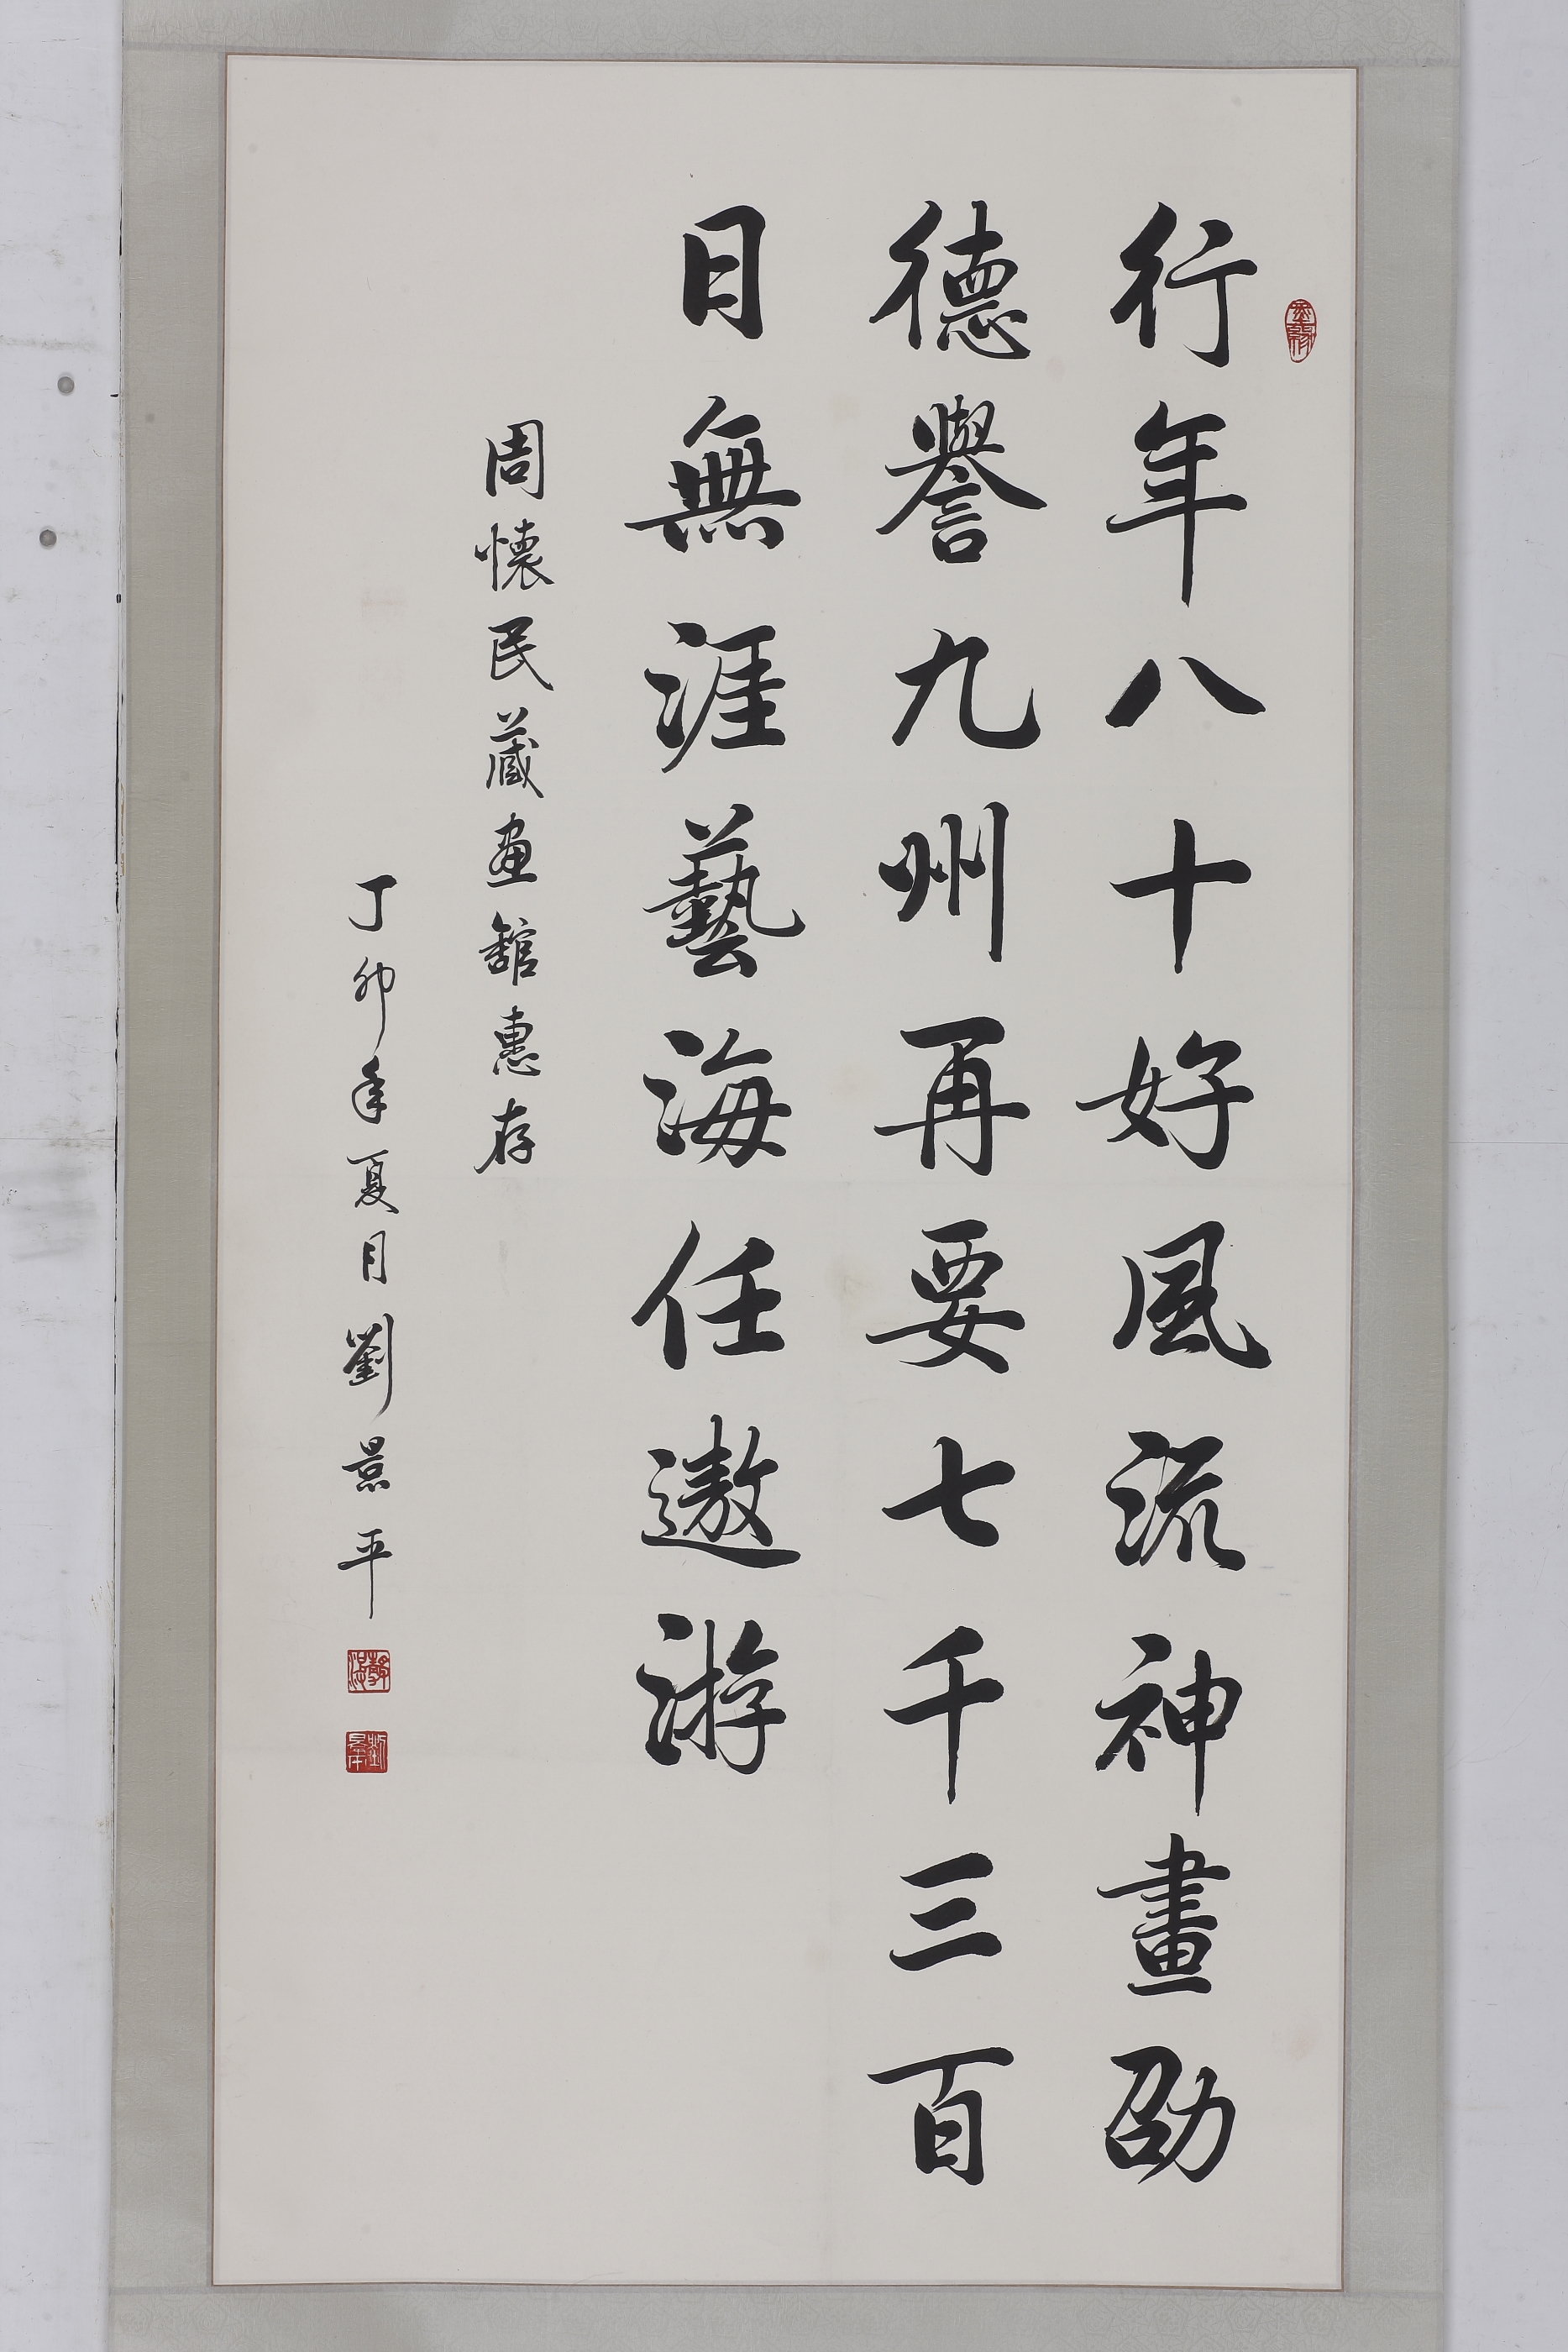 行年八十好風流神畫劭
德譽九州再要七千三百
日無涯藝海任遨游
周懷民藏畫館惠存
丁卯年夏月劉景平